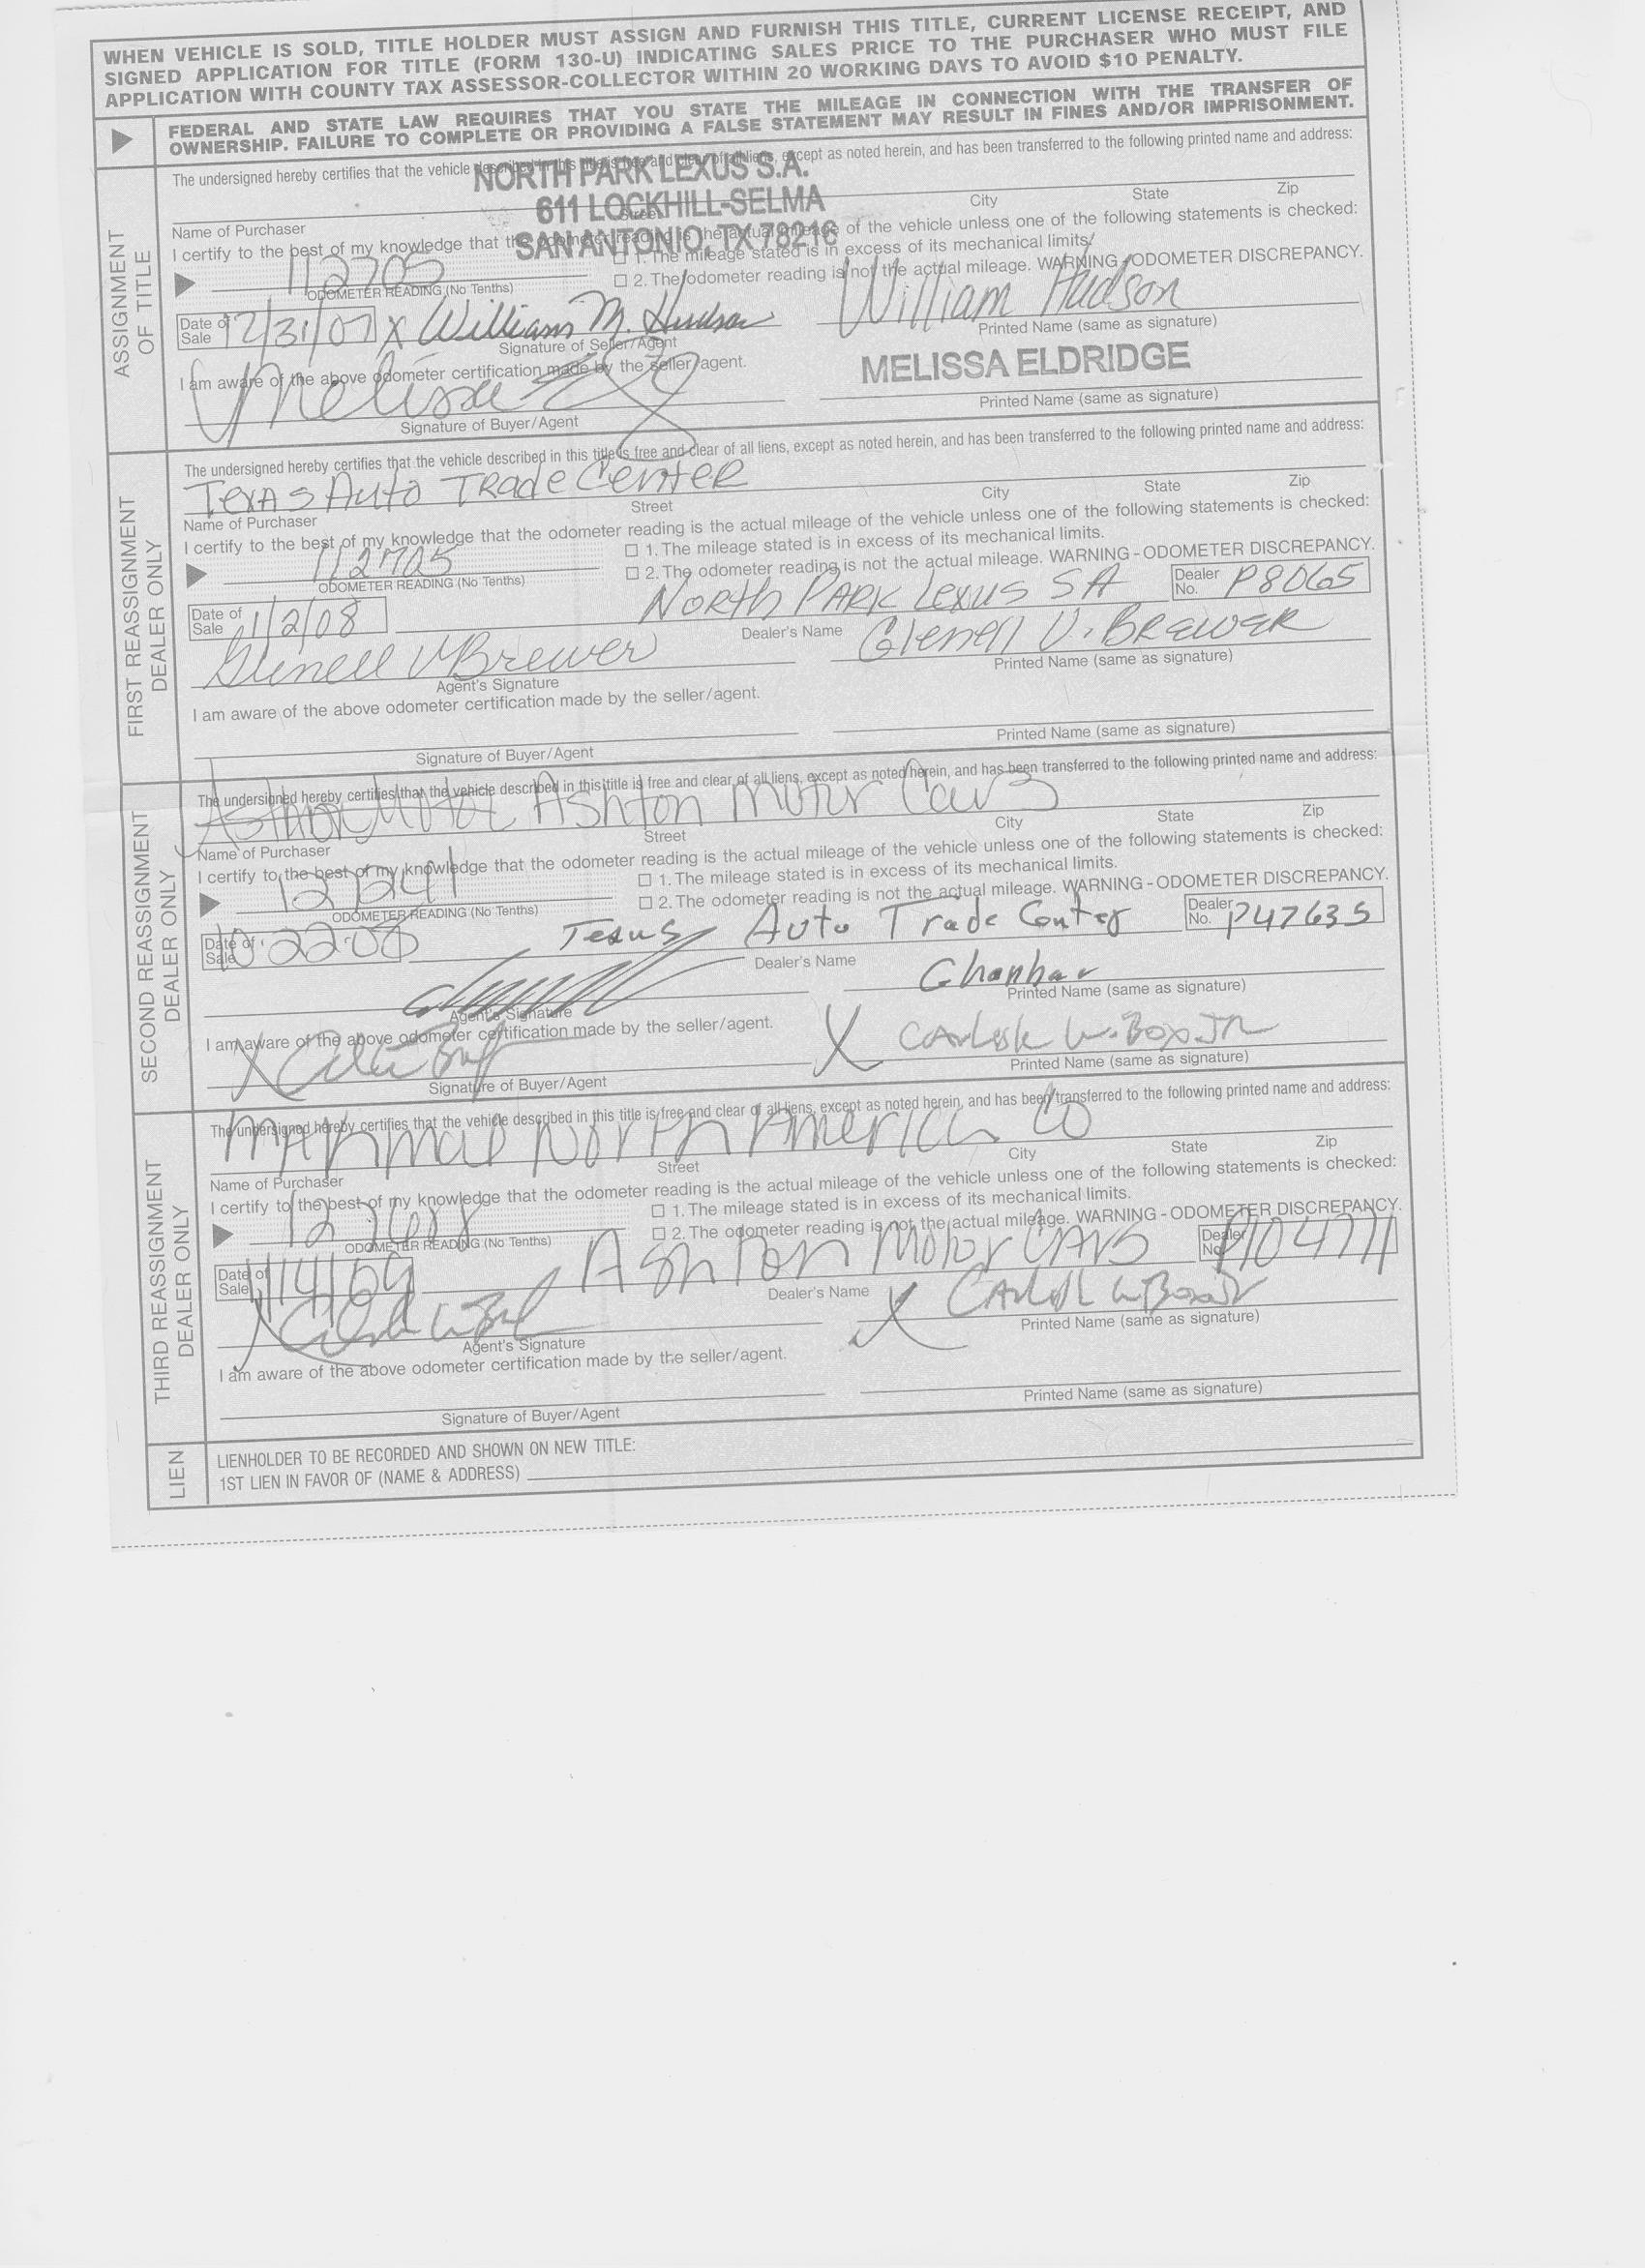 WHEN VEHICLE IS SOLD, TITLE HOLDER MUST ASSIGN AND FURNISH THIS TITLE, CURRENT LICENSE RECEIPT, AND
SIGNED APPLICATION FOR TITLE (FORM 130-U) INDICATING SALES PRICE TO THE PURCHASER WHO MUST FILE
APPLICATION WITH COUNTY TAX ASSESSOR-COLLECTOR WITHIN 20 WORKING DAYS TO AVOID $10 PENALTY.
FEDERAL AND STATE LAW REQUIRES THAT YOU STATE THE MILEAGE IN CONNECTION WITH THE TRANSFER OF
OWNERSHIP. FAILURE TO COMPLETE OR PROVIDING A FALSE STATEMENT MAY RESULT IN FINES AND/OR IMPRISONMENT.
ASSIGNMENT OF TITLE
The undersigned hereby certifies that the vehicle described in this title is free and clear of all liens, except as noted herein, and has been transferred to the following printed name and address:
NORTH PARK LEXUS S.A.
611 LOCKHILL-SELMA
SAN ANTONIO, TX 78216
Name of Purchaser Street City State Zip
I certify to the best of my knowledge that the odometer reading is the actual mileage of the vehicle unless one of the following statements is checked:
112705
☐ 1. The mileage stated is in excess of its mechanical limits.
ODOMETER READING (No Tenths) ☐ 2. The odometer reading is not the actual mileage. WARNING - ODOMETER DISCREPANCY.
Date of Sale 12/31/07 X William M. Hudson William Hudson
Signature of Seller/Agent Printed Name (same as signature)
I am aware of the above odometer certification made by the seller/agent.
Melissa MELISSA ELDRIDGE
Signature of Buyer/Agent Printed Name (same as signature)
FIRST REASSIGNMENT DEALER ONLY
The undersigned hereby certifies that the vehicle described in this title is free and clear of all liens, except as noted herein, and has been transferred to the following printed name and address:
Texas Auto Trade Center
Name of Purchaser Street City State Zip
I certify to the best of my knowledge that the odometer reading is the actual mileage of the vehicle unless one of the following statements is checked:
112705 ☐ 1. The mileage stated is in excess of its mechanical limits.
ODOMETER READING (No Tenths) ☐ 2. The odometer reading is not the actual mileage. WARNING - ODOMETER DISCREPANCY.
Date of Sale 1/2/08 North Park Lexus SA Dealer No. P8065
Dealer's Name
Glenell V Brewer Glenell V. Brewer
Agent's Signature Printed Name (same as signature)
I am aware of the above odometer certification made by the seller/agent.
Signature of Buyer/Agent Printed Name (same as signature)
SECOND REASSIGNMENT DEALER ONLY
The undersigned hereby certifies that the vehicle described in this title is free and clear of all liens, except as noted herein, and has been transferred to the following printed name and address:
Ashton Motor Cars
Name of Purchaser Street City State Zip
I certify to the best of my knowledge that the odometer reading is the actual mileage of the vehicle unless one of the following statements is checked:
☐ 1. The mileage stated is in excess of its mechanical limits.
ODOMETER READING (No Tenths) ☐ 2. The odometer reading is not the actual mileage. WARNING - ODOMETER DISCREPANCY.
Date of Sale 10·22·08 Texas Auto Trade Center Dealer No. P47635
Dealer's Name
Ghanbar
Agent's Signature Printed Name (same as signature)
I am aware of the above odometer certification made by the seller/agent.
X X W. Box Jr
Signature of Buyer/Agent Printed Name (same as signature)
THIRD REASSIGNMENT DEALER ONLY
The undersigned hereby certifies that the vehicle described in this title is free and clear of all liens, except as noted herein, and has been transferred to the following printed name and address:
North America Co
Name of Purchaser Street City State Zip
I certify to the best of my knowledge that the odometer reading is the actual mileage of the vehicle unless one of the following statements is checked:
☐ 1. The mileage stated is in excess of its mechanical limits.
ODOMETER READING (No Tenths) ☐ 2. The odometer reading is not the actual mileage. WARNING - ODOMETER DISCREPANCY.
Date of Sale 1/14/09 Ashton Motor Cars Dealer No.
Dealer's Name
X X
Agent's Signature Printed Name (same as signature)
I am aware of the above odometer certification made by the seller/agent.
Signature of Buyer/Agent Printed Name (same as signature)
LIEN
LIENHOLDER TO BE RECORDED AND SHOWN ON NEW TITLE:
1ST LIEN IN FAVOR OF (NAME & ADDRESS)